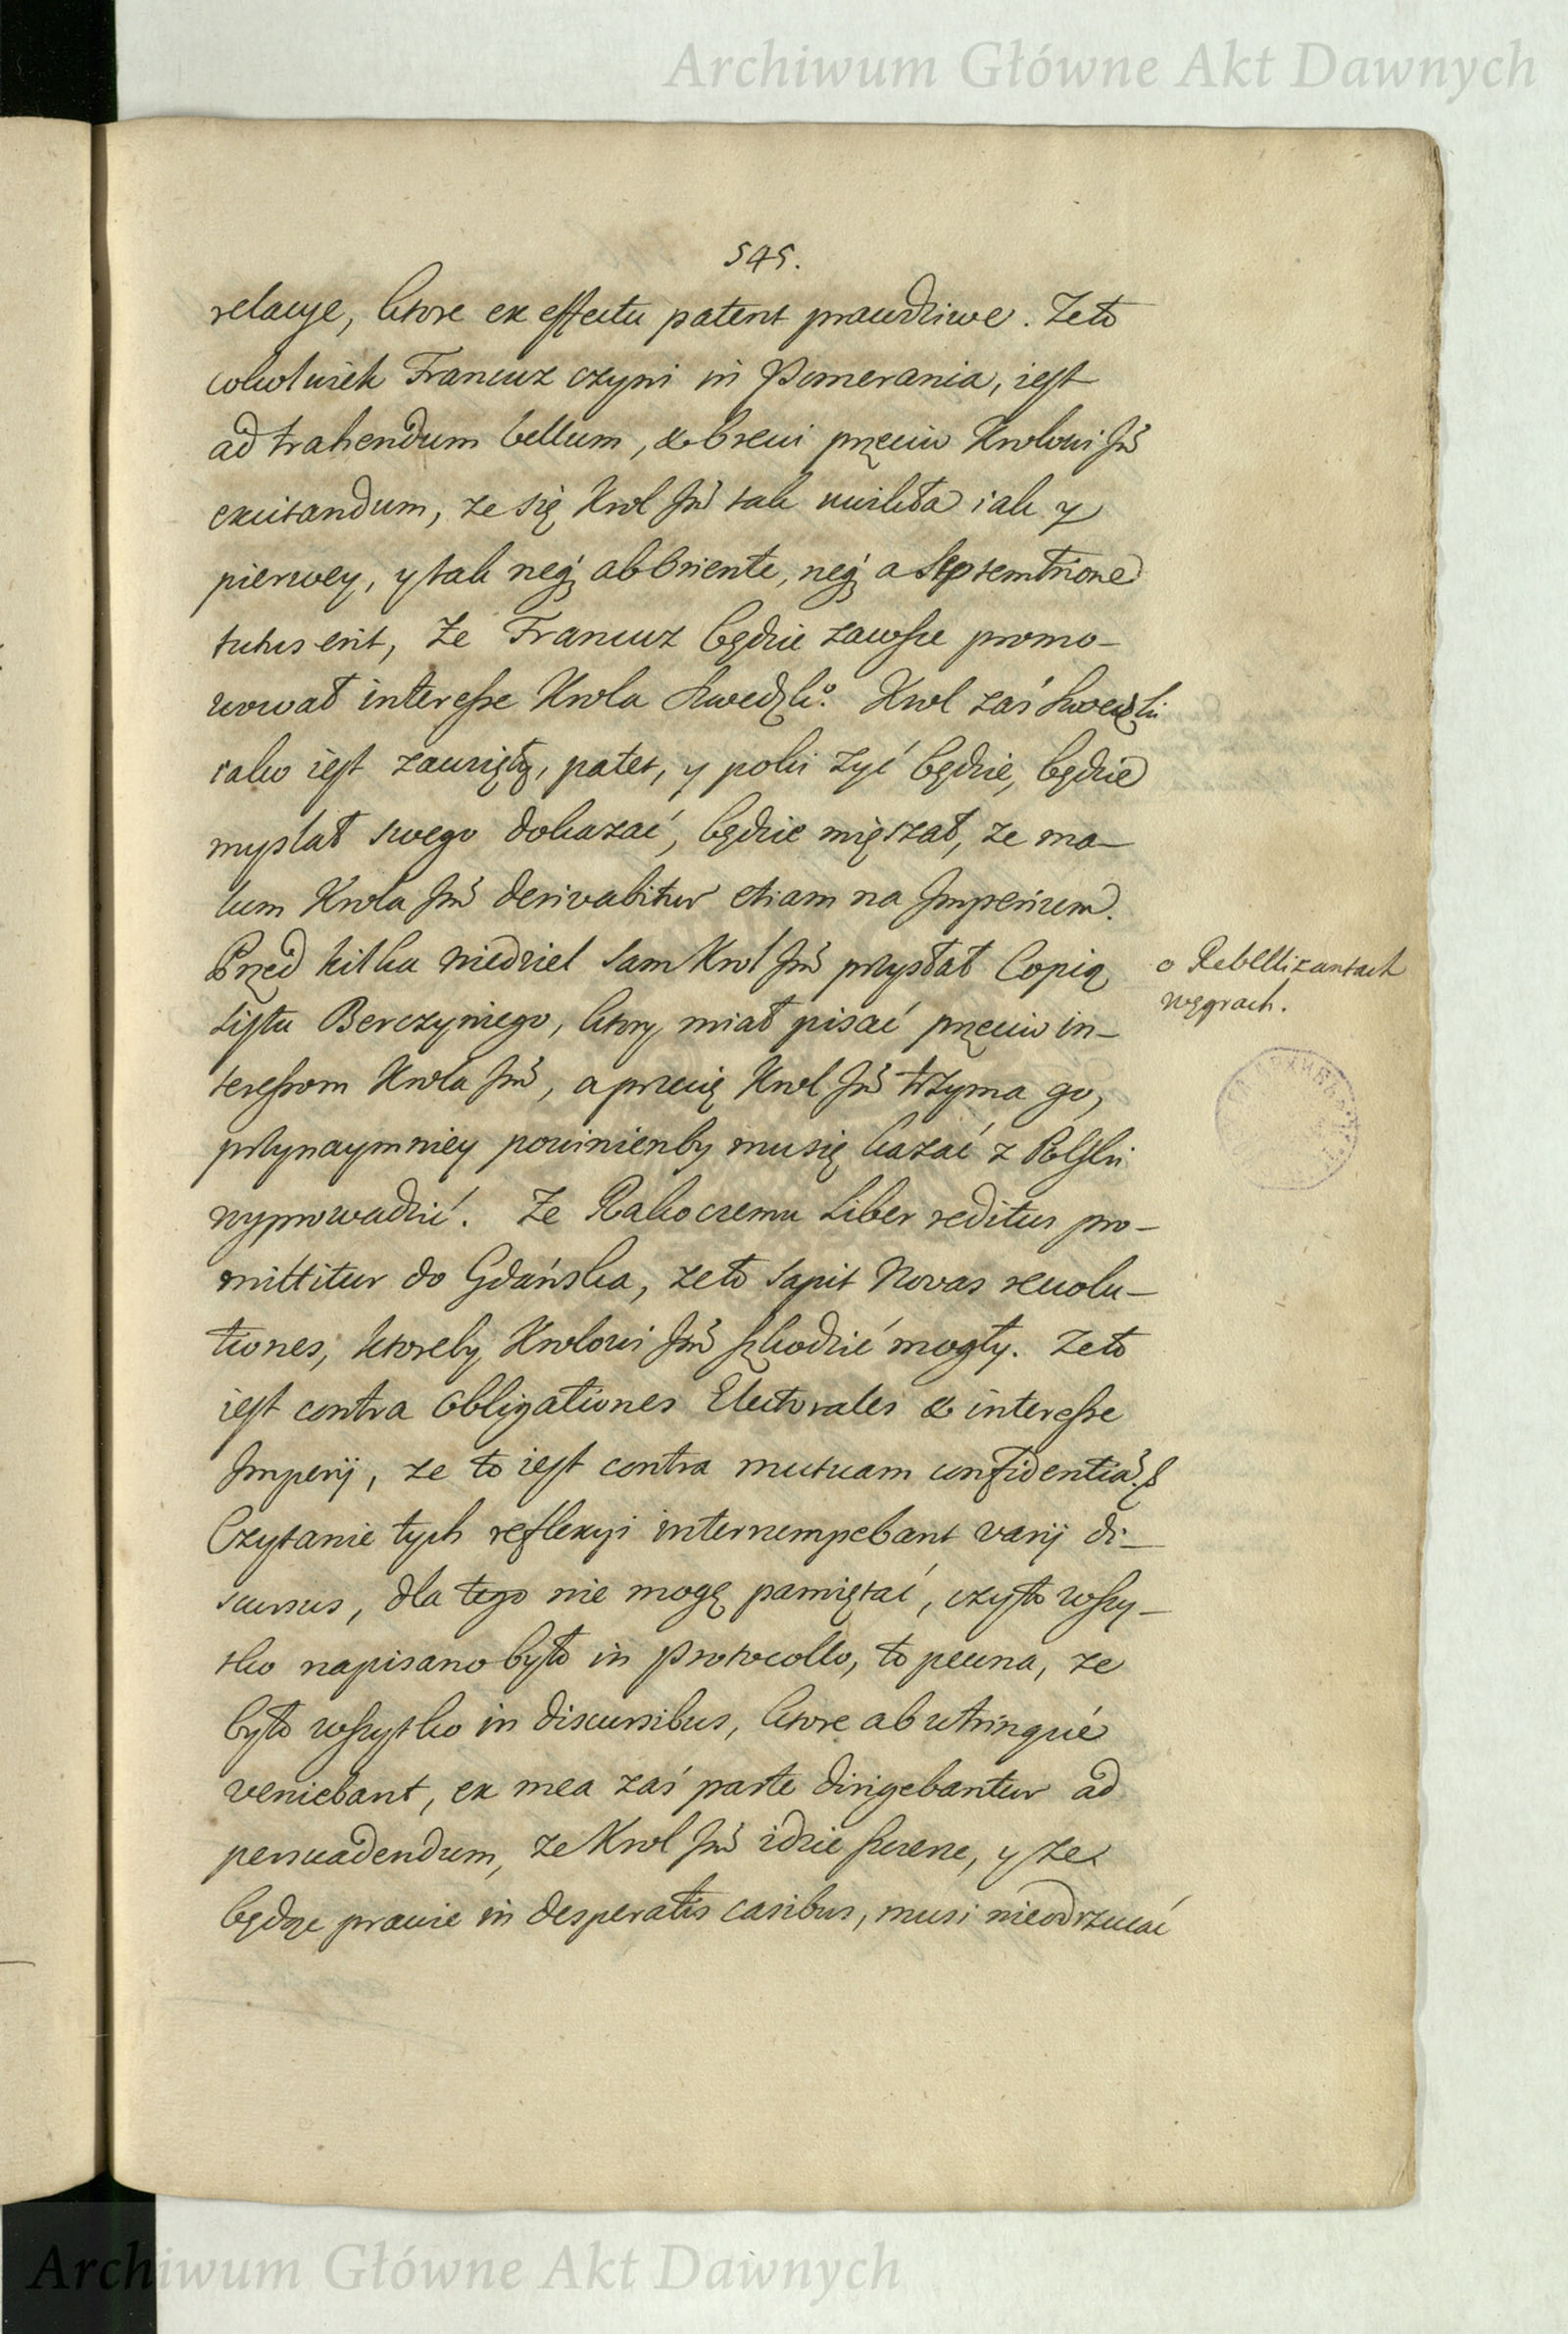 Archiwum Główne Akt Dawnych
545.
relacye, ktore ex effectu patent prawdziwe. Ze to
cokolwiek Francuz czyni in Pomerania, iest
ad trahendum bellum, & brevi przeciw Krolowi Jmć
excitandum, ze się Krol Jmć tak uwikła iak y
pierwey, y tak neq; ab Oriente, neq; a Septemtrione
tutus erit, Ze Francuz będzie zawsze promo-
wował interesse Krola Szwedzko. Krol zaś Szwedzki
iako iest zawzięty, patet, y poki żyć będzie, będzie
myslał swego dokazać, będzie mięszał, ze ma-
lum Krola Jmć derivabitur etiam na Imperium.
Przed kilka niedziel sam Krol Jmć przysłał Copią
o Rebellizantach
węgrach.
Listu Berczyniego, ktory miał pisać przeciw in-
teressom Krola Jmć, a przecię Krol Jmć trzyma go,
przynaymniey powinienby mu się kazać z Polski
wyprowadzić. Ze Rakoczemu Liber reditus pro-
mittitur do Gdańska, ze to sapit Novas revolu-
tiones, ktoreby Krolowi Jmć szkodzić mogły. Ze to
iest contra obligationes Electorales & interesse
Imperij, ze to iest contra mutuam confidentia.
Czytanie tych reflexyi interrumpebant varij di-
scursus, dla tego nie mogę pamiętać, czy to wszy-
tko napisano było in Protocollo, to pewna, ze
było wszystko in discursibus, ktore ab utrinque
veniebant, ex mea zaś parte dirigebantur ad
persuadendum, ze Krol Jmć idzie szcerze, y ze
będąc prawie in desperatis casibus, musi nieodrzucać
Archiwum Główne Akt Dawnych